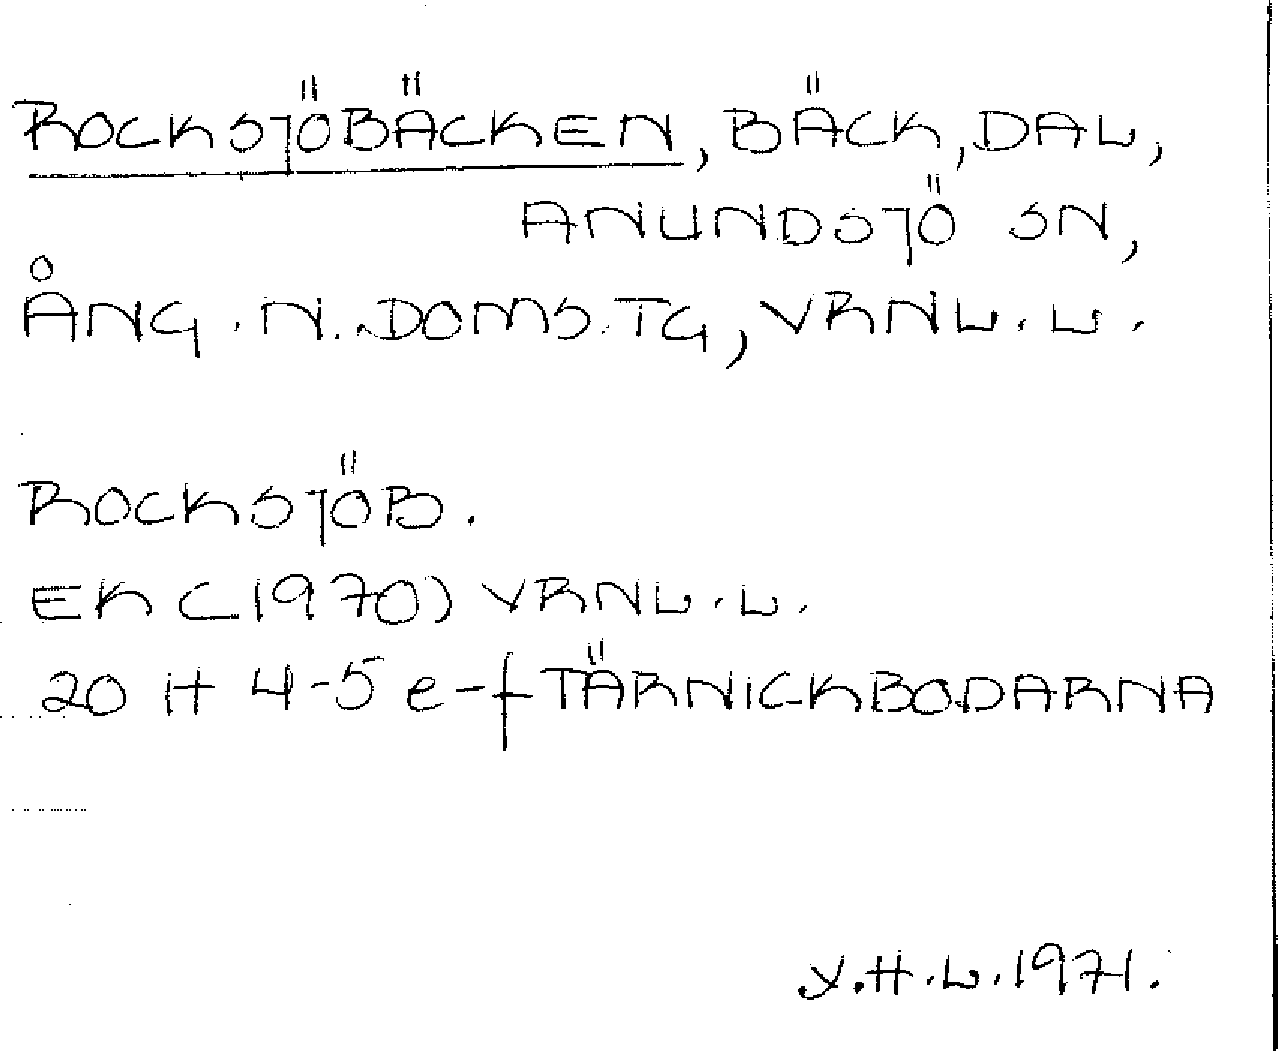 ROCKSJÖBÄCKEN, BÄCK, DAL,
ANUNDSJÖ SN,
ÅNG. N. DOMS. TG, VRNL. L.
ROCKSJÖB.
EK (1970) VRNL. L.
20 H 4-5 e-f TÄRNICKBODARNA
Y.H.L. 1971.